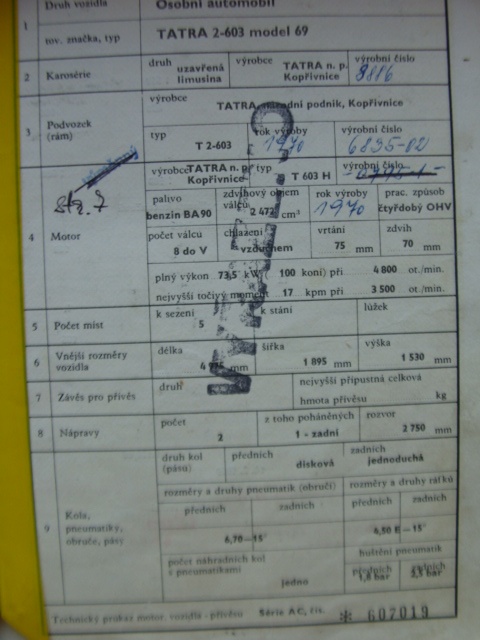 Druh vozidla Osobní automobil
1
tov. značka, typ TATRA 2-603 model 69
2 Karosérie druh uzavřená limusina výrobce TATRA n. p. Kopřivnice výrobní číslo
výrobce TATRA, národní podnik, Kopřivnice
3 Podvozek (rám) typ T 2-603 rok výroby 1970 výrobní číslo 6895-02
Str. 7
výrobce TATRA n. p. Kopřivnice typ T 603 H výrobní číslo
palivo benzin BA90 zdvihový objem válců 2 472 cm³ rok výroby 1970 prac. způsob čtyřdobý OHV
4 Motor počet válcu 8 do V chlazení vzduchem vrtání 75 mm zdvih 70 mm
plný výkon 73,5 kW ( 100 koní) při 4 800 ot./min.
nejvyšší točivý moment 17 kpm při 3 500 ot./min.
5 Počet míst k sezení 5 k stání lůžek
6 Vnější rozměry vozidla délka mm šířka 1 895 mm výška 1 530 mm
7 Závěs pro přívěs druh nejvyšší přípustná celková hmota přívěsu kg
8 Nápravy počet 2 z toho poháněných 1 - zadní rozvor 2 750 mm
druh kol (pásu) předních disková zadních jednoduchá
rozměry a druhy pneumatik (obručí) rozměry a druhy ráfků
předních zadních předních zadních
9 Kola, pneumatiky, obruče, pásy 6,70—15" 4,50 E—15"
počet náhradních kol s pneumatikami jedno huštění pneumatik
předních 1,8 bar zadních
Technický průkaz motor. vozidla - přívěsu Série AC, čís. ✻ 607019